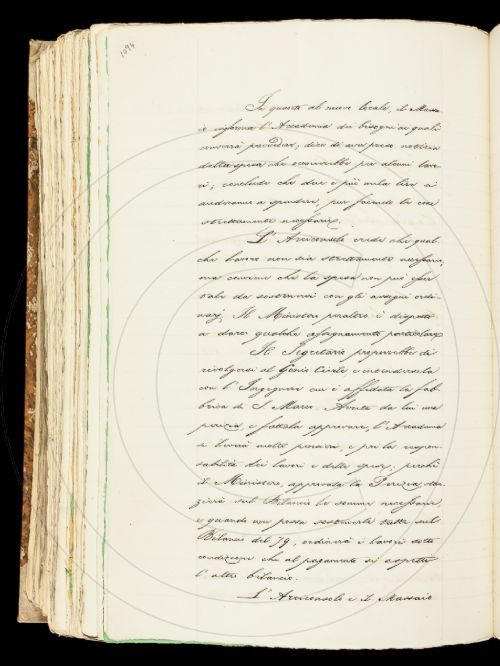 1094
In quanto al nuovo locale, il Massa-
io informa l'Accademia dei bisogni ai quali
converrà provvedere; dice di aver preso notizia
della spesa che occorrerebbe per alcuni lavo-
ri; conclude che due o più mila lire si
andranno a spendere, pur facendo le cose
strettamente necessarie.
L'Arciconsolo crede che qual-
che lavoro non sia strettamente necessario,
ma conviene che la spesa non può esser
tale da sostenersi con gli assegni ordi-
nari; Il Ministero peraltro è disposto
a dare qualche assegnamento particolare.
Il Segretario proporrebbe di
rivolgersi al Genio Civile e intendersela
con l'Ingegnere cui è affidata la fab-
brica di S. Marco. Avuta da lui una
perizia, e fattala approvare, l'Accademia
si leverà molti pensieri, e poi la respon-
sabilità dei lavori e della spesa; perchè
il Ministero, approvata la Perizia, stan-
zierà sul Bilancio le somme necessarie,
e quando non possa sostenerle tutte sul
Bilancio del 79, ordinerà i lavori sotto
condizione che al pagamento si aspetti
l'altro bilancio.
L'Arciconsolo e il Massaio